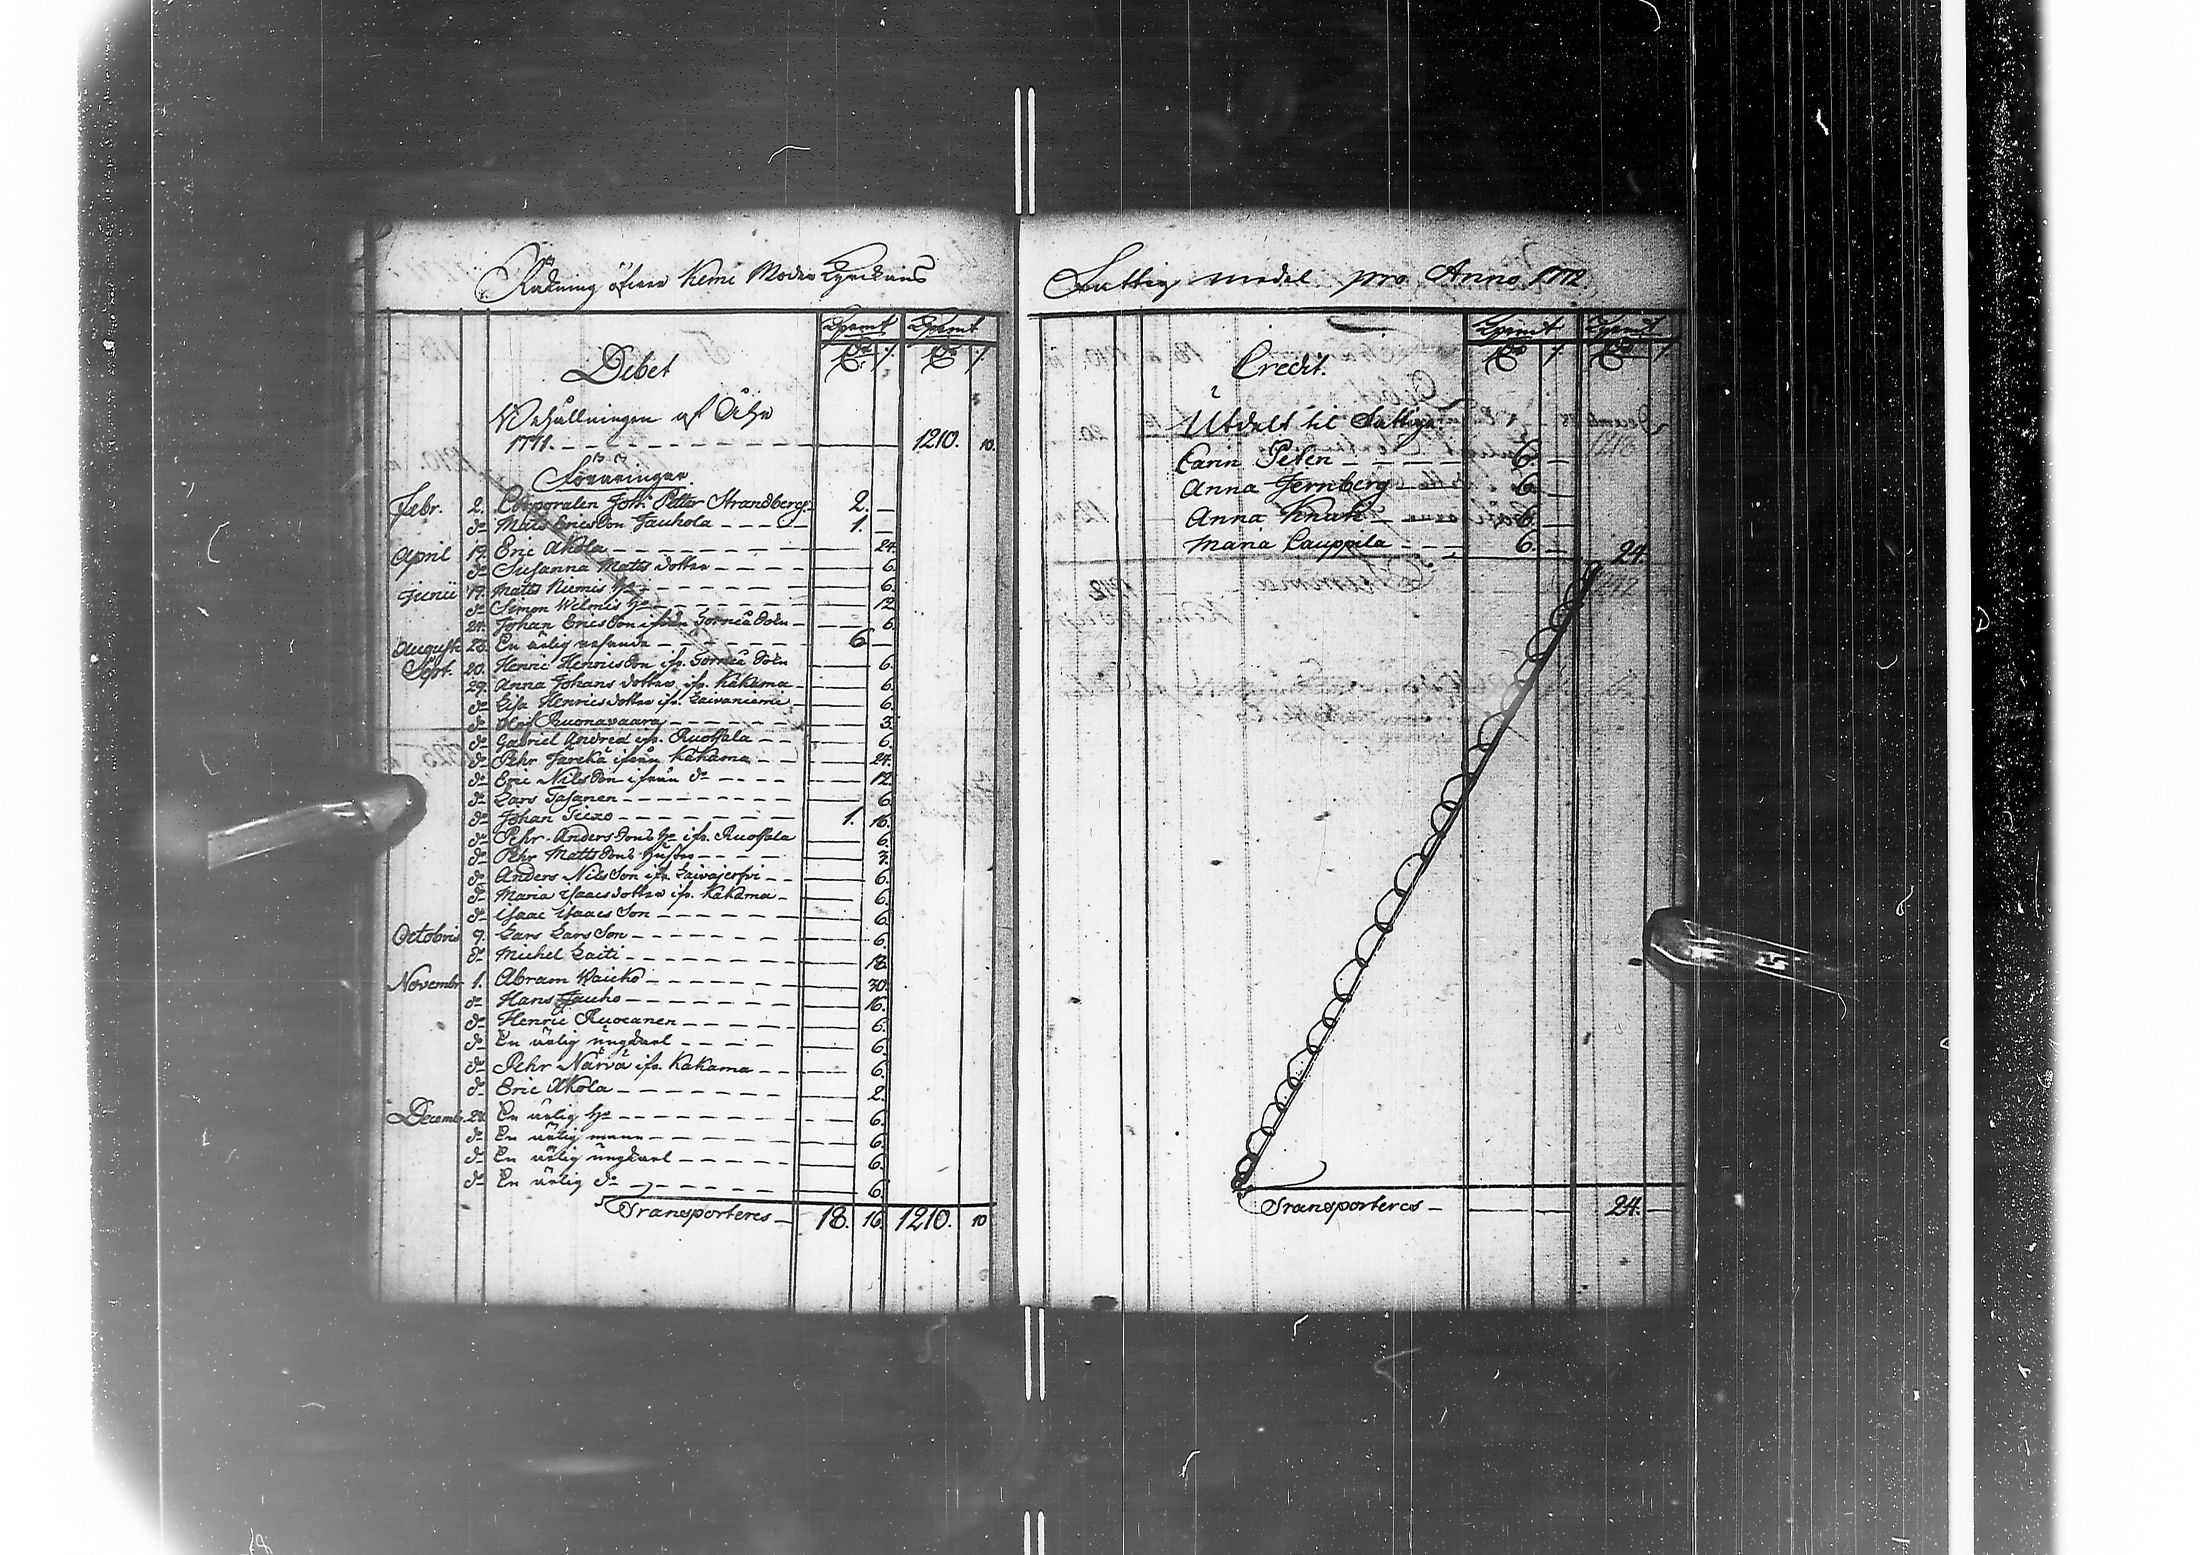 Räkning öfwer Kemi Moder Kyrckans
Kprmt Kprmt
Debet
Behållningen af Åhr
1771. 1210. 10.
Föräringar.
Febr. 2. Corporalen Joh: Petter Strandberg 2.
do Matts Ericsson Jauhola 1.
April 19. Eric Akola 24.
do Susanna Matts dotter 6.
Junii 19. Matts Niemis 6.
do Simon Welmis 12.
24. Johan Ericsson ifrån Torneå 6.
Augusti 23. En ärlig resande 6
Sept. 20. Henric Henricsson ifr. Torneå 6.
29. Anna Johans dotter ifr. Kakama 6.
do Lisa Henrics dotter ifr. Laivaniemi 6.
do Olof Ruonavaara 3.
do Gabriel Andreæ ifr. Ruottala 6.
do Pehr Jarckä ifrån Kakama 24.
do Eric Nilsson ifrån do 12
do Lars Tasanen 6.
do Johan Tiezo 1. 16.
do Pehr Anderssons ifr. Ruottala 6.
do Pehr Mattssons hustru 3.
do Anders Nilsson ifr. Laivajerfvi 6.
do Maria Isaacs dotter ifr. Kakama 6.
do Isaac Isaacsson 6.
Octobris 9. Lars Larsson 6.
do Michel Laiti 18.
Novembr 1. Abram Waicko 30.
do Hans Jauho 16.
do Henric Ruocanen 6.
do En ärlig ungkarl 6.
do Pehr Närvä ifr. Kakama 6.
do Eric Akola 2.
Decemb. 24. En ärlig 6.
do En ärlig mann 6.
do En ärlig ungkarl 6.
do En ärlig do 6.
Transporteres 18. 16 1210. 10
Fattig medel pro Anno 1772.
Kprmt Kprmt
Credit.
Utdelt til Fattiga:
Carin Peten 6.
Anna Jernberg 6.
Anna Knak 6.
Maria Cauppila 6. 24.
Transporteres 24.